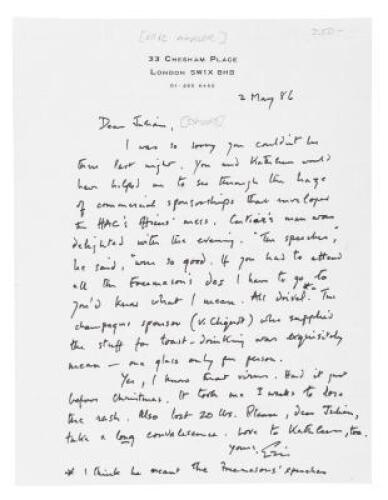 [ERIC AMBLER] 250-
33 CHESHAM PLACE
LONDON SW1X 8HB
2 May 86
Dear Julian, [SYMONS]
I was so sorry you couldn't be
there last night. You and Kathleen would
have helped me to see through the haze
of commercial sponsorships that enveloped
the HAC's officers' mess. Cartier's man was
delighted with the evening. "The speeches,"
he said, "were so good. If you had to attend
all the Freemason's dos I have to go to
you'd know what I mean. All drivel."* The
champagne sponsor (V. Cliquot) who supplied
the stuff for toast-drinking was exquisitely
mean — one glass only per person.
Yes, I know that virus. Had it just
before Christmas. It took me 3 weeks to lose
the rash. Also lost 20 lbs. Please, dear Julian,
take a long convalescence. Love to Kathleen, too.
Yours, Eric
* I think he meant the Freemasons' speeches